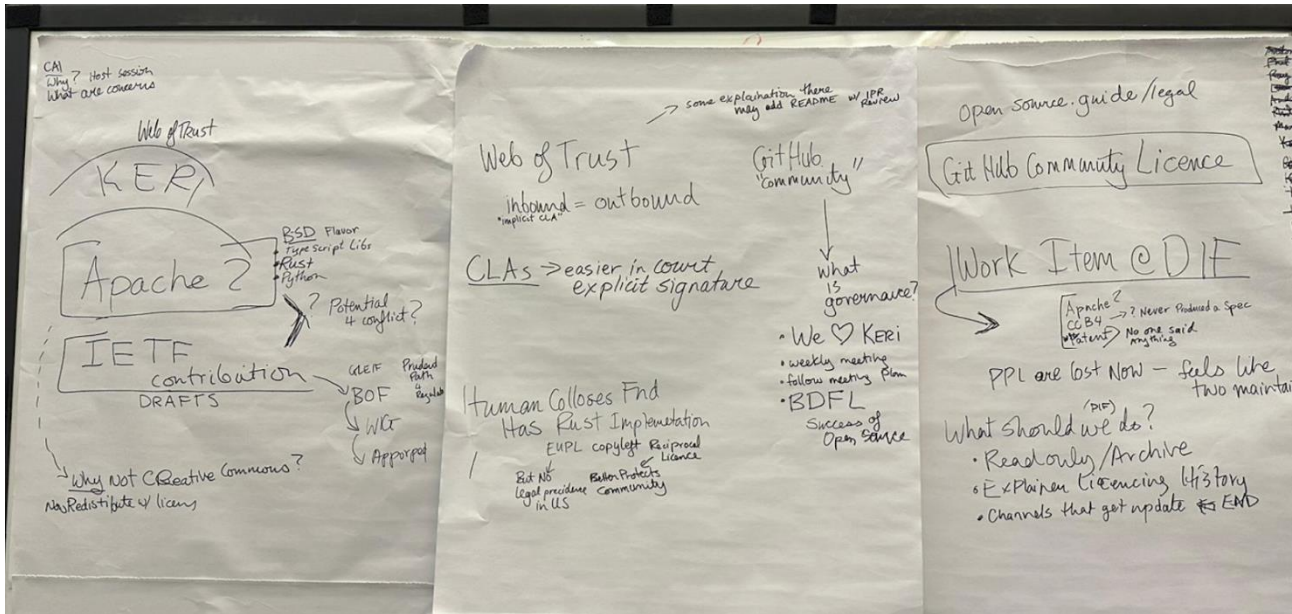 CAI
Why? Host session
What are concerns
Web of Trust
KERI
Apache 2
BSD Flavor
Typescript Libs
Rust
Python
? Potential
4 conflict?
IETF
contribution
DRAFTS
GLEIF
Prudent
Path
4
BOF
WG
Why Not Creative Commons?
Redistibute w/ licens
some explaination there
may add README w/ IPR
Review
Web of Trust
inbound = outbound
"implicit CLA"
CLAs → easier in court
explicit signature
Human Colloses Fnd
Has Rust Implemetation
EUPL copyleft Reciprocal
Licence
But No
legal precidence
in US
Better Protects
Community
GitHub
"community"
What
IS
governance?
• We ♡ KERI
• weekly meeting
• follow meeting plan
• BDFL
Success of
Open Source
Open source.guide/legal
GitHub Community Licence
Work Item @ DIF
Apache 2
CCB4 → ? Never Produced a Spec
Patent No one said
Anything
PPL are Lost Now – feels like
two maintai
What should we do?
(DIF)
• Readonly/Archive
• Explainer Licencing History
• Channels that get update ← END